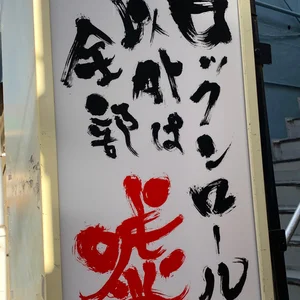 ロックンロール
以外は
全部
嘘